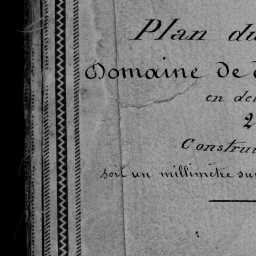 Plan du
Domaine de
en de
2
Construi
soit un millimètre su